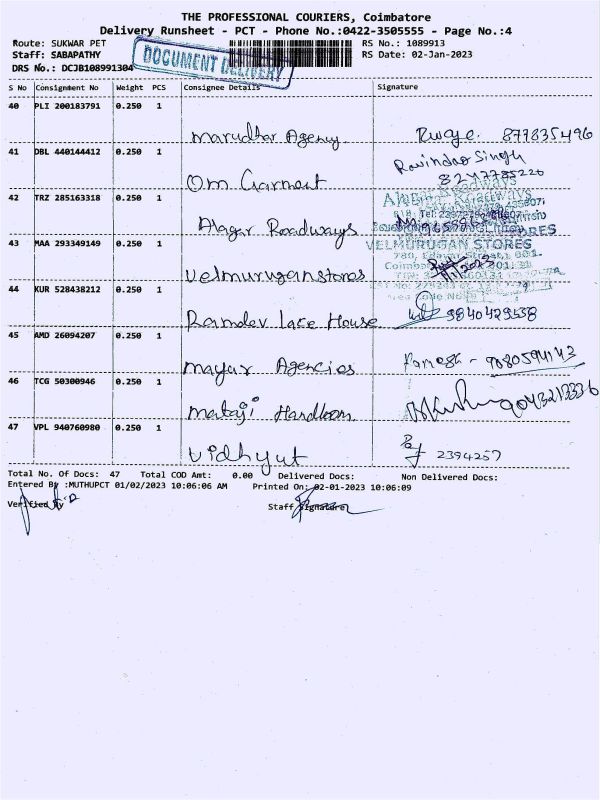 THE PROFESSIONAL COURIERS, Coimbatore
Delivery Runsheet - PCT - Phone No.:0422-3505555 - Page No.:4
Route: SUKWAR PET RS No.: 1089913
Staff: SABAPATHY RS Date: 02-Jan-2023
DRS No.: DCJB108991304
DOCUMENT DELIVERY
S No Consignment No Weight PCS Consignee Details Signature
40 PLI 200183791 0.250 1
Marudhar Agency 8778354196
41 DBL 440144412 0.250 1
Om Garment Ravindar Singh
8247785220
42 TRZ 285163318 0.250 1
Alagar Roadways
Alagar Roadways
43 MAA 293349149 0.250 1
Velmurugan stores
VELMURUGAN STORES
44 KUR 528438212 0.250 1
Ramdev lace House 9840429538
45 AMD 26094207 0.250 1
Mayur Agencies Ramesh - 9080594143
46 TCG 50300946 0.250 1
Mataji Handloom 9043213336
47 VPL 940760980 0.250 1
Vidhyut 2394257
Total No. Of Docs: 47 Total COD Amt: 0.00 Delivered Docs: Non Delivered Docs:
Entered By :MUTHUPCT 01/02/2023 10:06:06 AM Printed On: 02-01-2023 10:06:09
Verified By Staff Signature